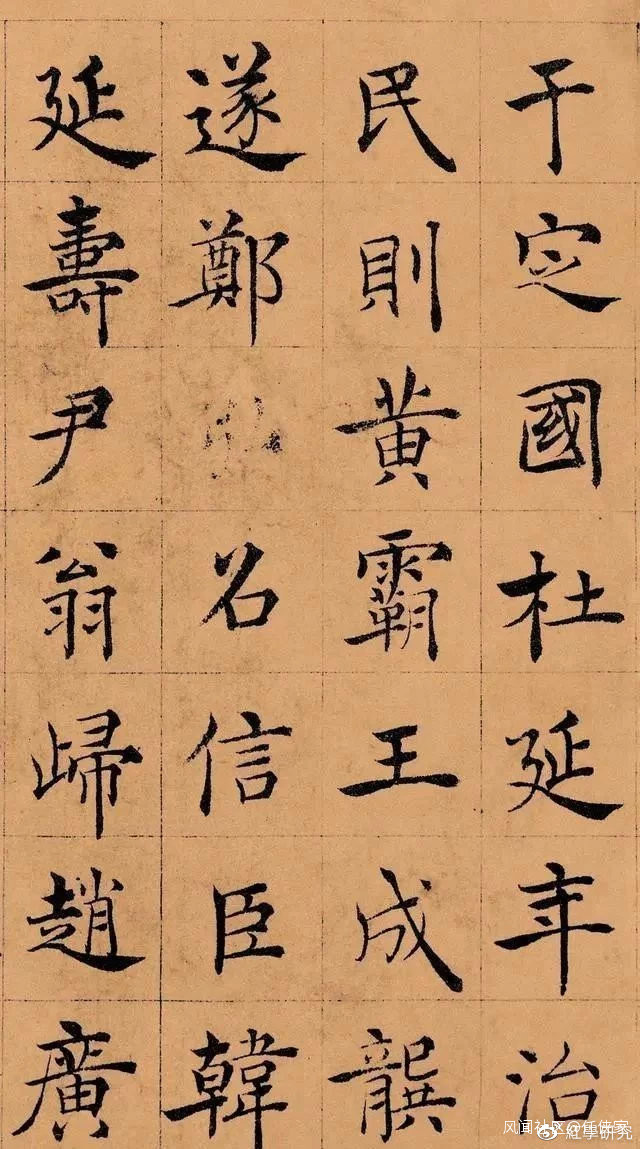 于定國杜延年治
民則黃霸王成龔
遂鄭弘召信臣韓
延壽尹翁歸趙廣
风闻社区@任佳宝
@紅學研究